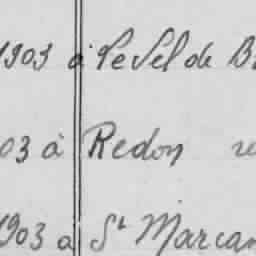 1903 à Le Sel de B
03 à Redon
1903 à St Marcan